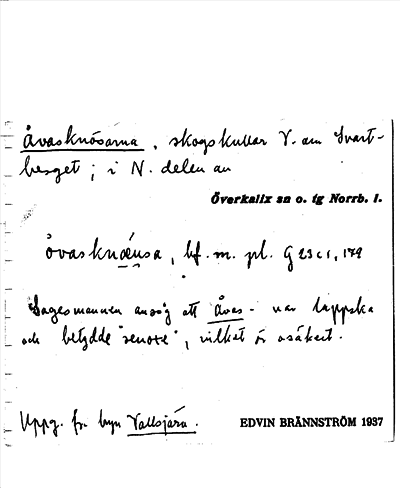 Åvasknösarna, skogskullar V. om Svart-
berget; i N. delen av
Överkalix sn o. tg Norrb. l.
åvasknœ́nsa, bf. m. pl. G 23 c 1, 179
Sagesmannen ansåg att åvas- var lappska
och betydde "renoxe", vilket är osäkert.
Uppg. fr. byn Vallsjärv.
EDVIN BRÄNNSTRÖM 1937